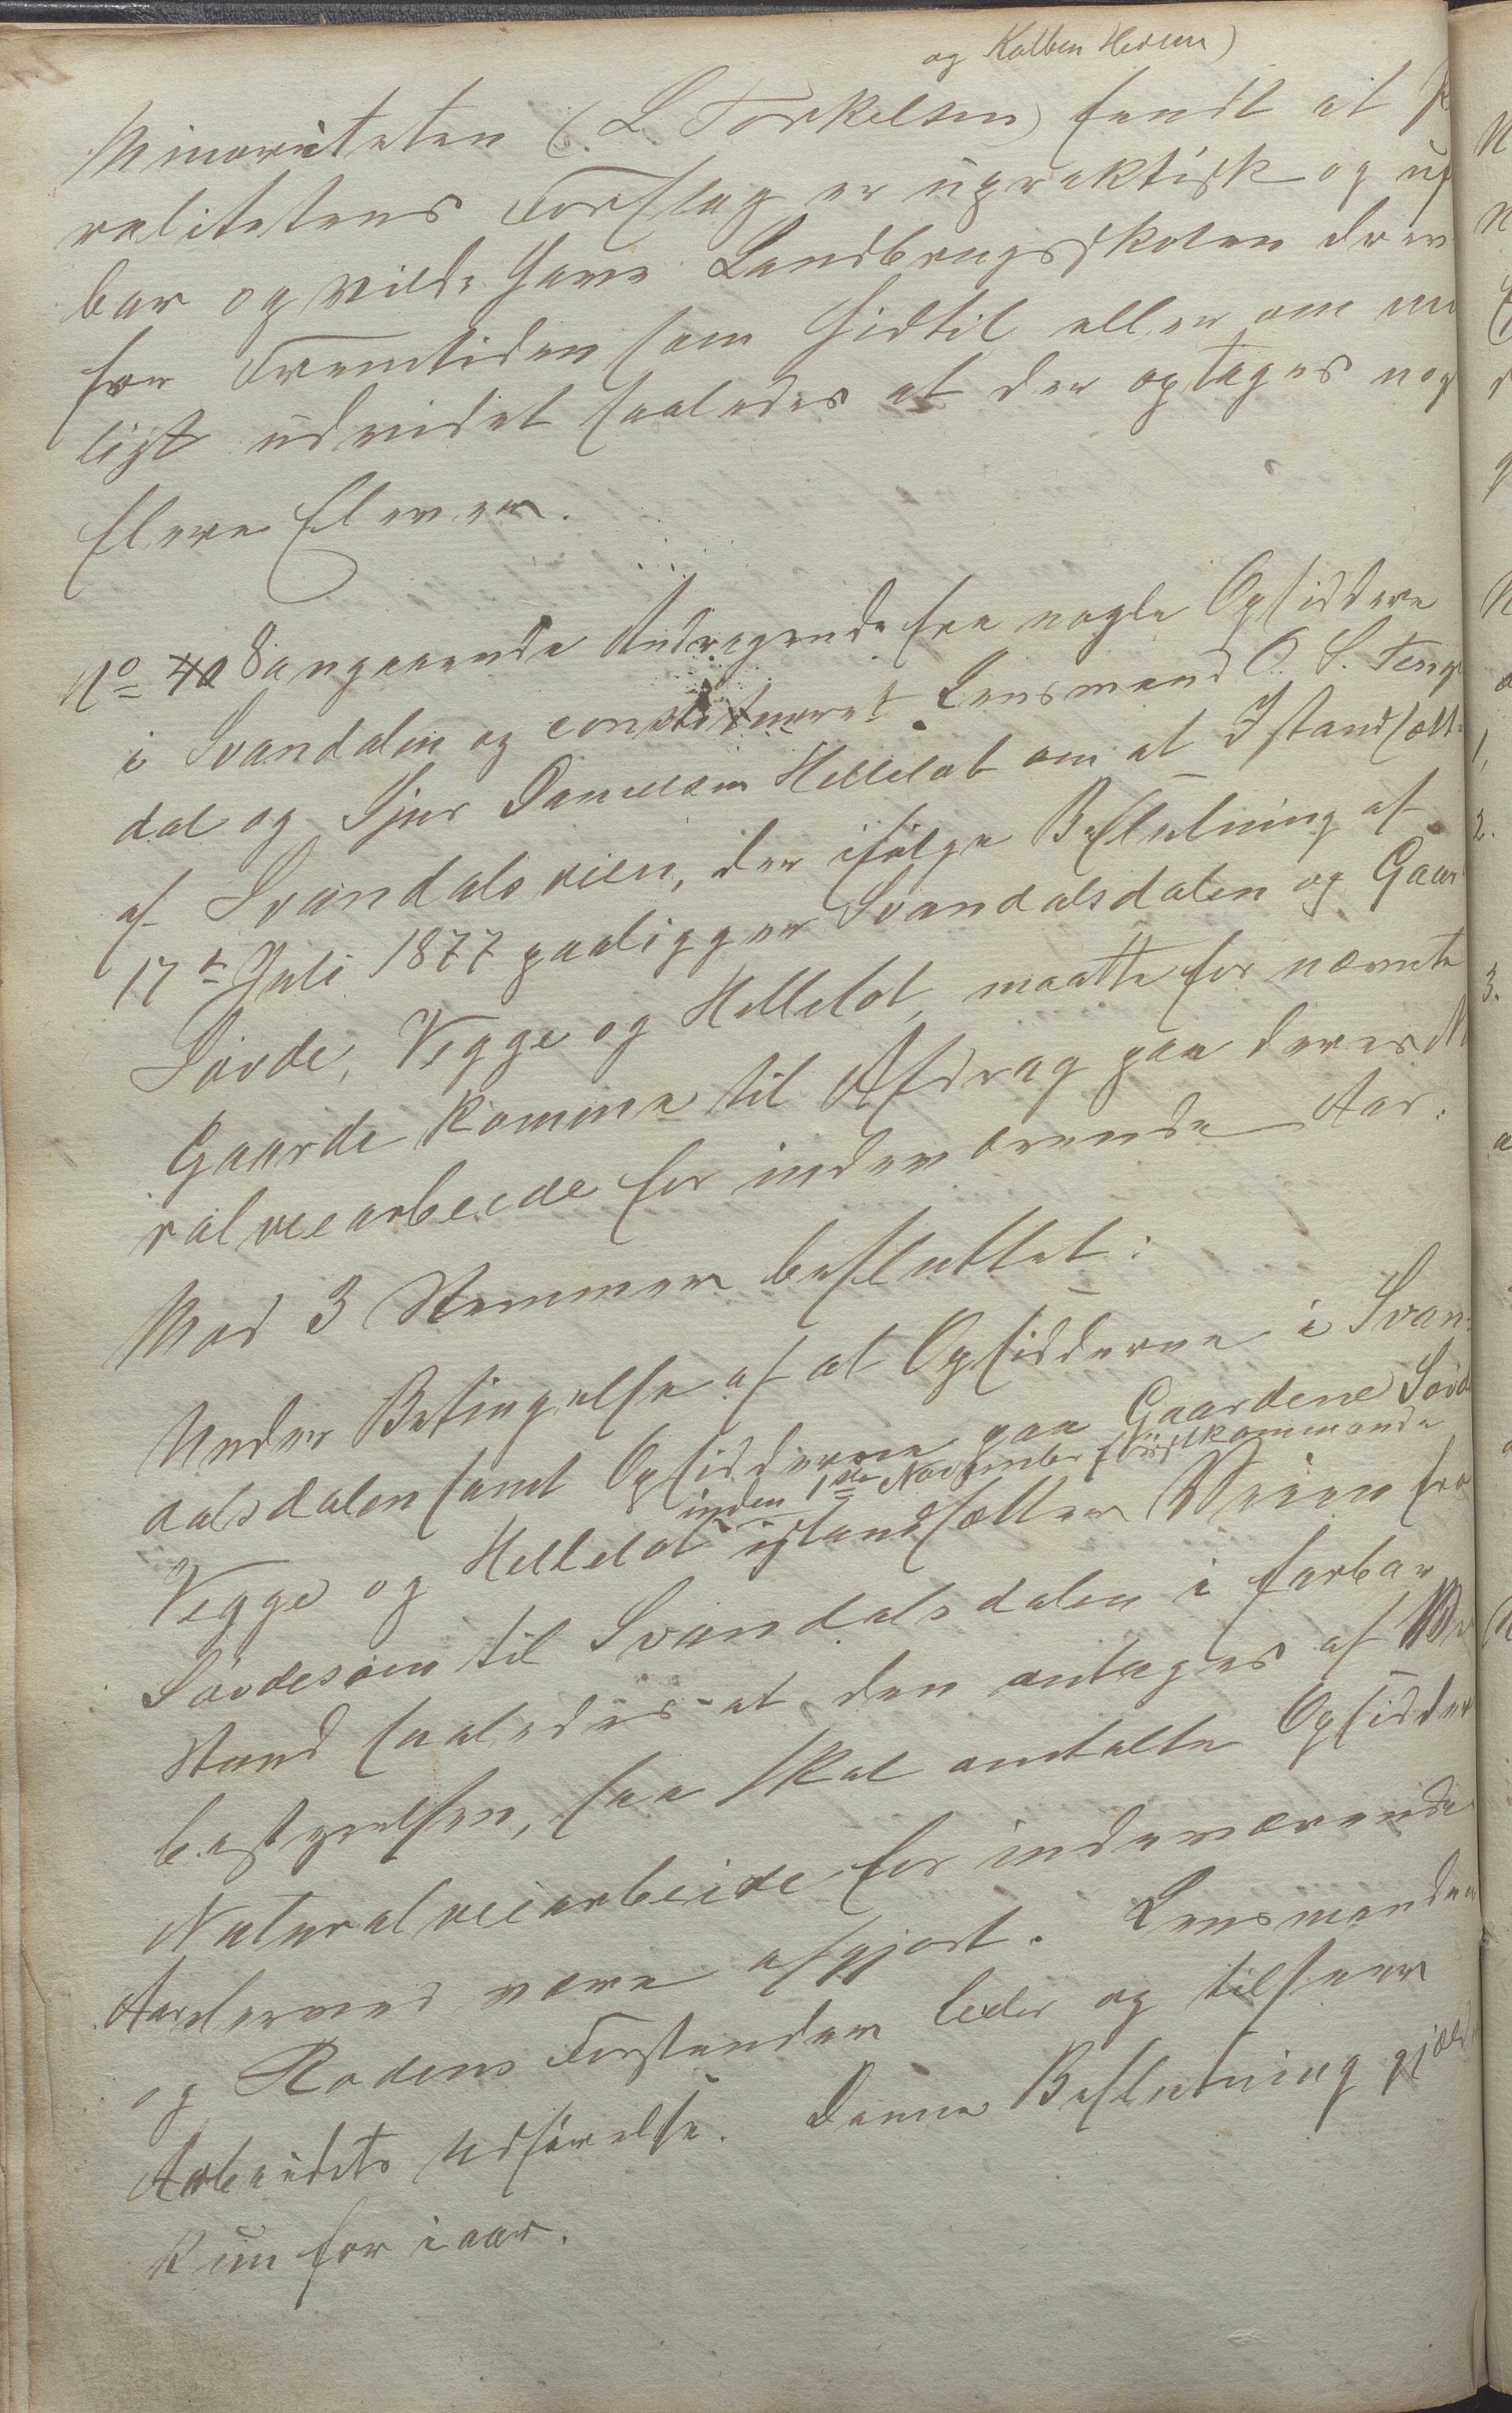 og Kolben Hedem)
Minoriteten (L Torkelsen) fandt at
ralitetens Forslag er upraktisk og uf
bar og vilde have Landbrugsskolen drev
for Fremtiden som hidtil eller om mu
ligt udvidet saaledes at der optages nog
flere Elever.
No 8 angaaende Andragende fra nogle Opsiddere
i Svandalen og constitueret Lensmand O. S.
dal og Sjur Danielsen Hellelot om at Istandsætt
af Svandalsveien, der ifølge Beslutning af
17de Juli 1877 paaligger Svandalsdalen og Gaar
Søvde, Vegge og Hellelot, maatte for nævnte
Gaarde komme til Afdrag paa deres
ralveiarbeide for indeværende Aar.
Mod 3 Stemmer besluttet:
Under Betingelse af at Opsidderne i Svan-
dalsdalen samt Opsidderne paa Gaardene Søvd
inden 1ste November førstkommende
Vegge og Hellelot istandsætter Veien fra
Søvdesøen til Svandalsdalen i farbar
Stand saaledes at den antages af
bestyrelsen, saa skal omtalte Opsidder
Naturalveiarbeide for indeværende
Aar dermed være afgjort. Lensmanden
og Rodens Forstander leder og tilseer
Arbeidets Udførelse. Denne Beslutning gjæld
kun for iaar.